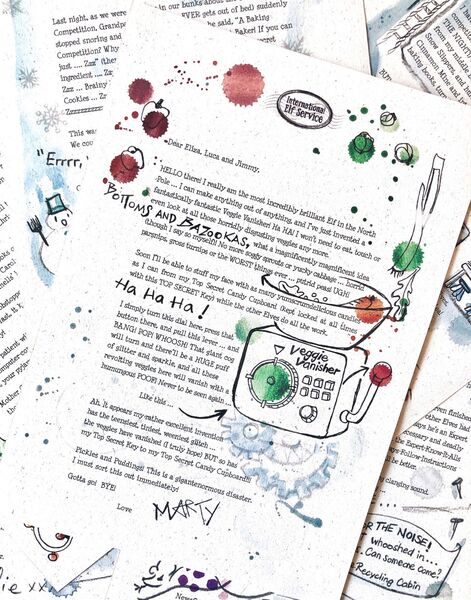 Last night, as we were
Competition. Grandpa
stopped snoring and
Competition? Why
just .... Zzz" (they
ingredient, ... Zzz
Zzz ... Brainy
Cookies ... Zzz
This was
We cou
"Errrr,
in our bunks about
EVER gets out of bed) suddenly
he said. "A Baking
Baker! If you can
International
Elf Service
Dear Eliza, Luca and Jimmy,
HELLO there! I really am the most incredibly brilliant Elf in the North
Pole ... I can make anything out of anything, and I've just invented a
fantastically fantastic Veggie Vanisher! Ha HA! I won't need to eat, touch or
even look at all those horridly disgusting veggies any more.
BOTTOMS AND BAZOOKAS, what a magnificently magnificent idea
(though I say so myself)! No more soggy sprouts or yucky cabbage ... horrid
parsnips, gross turnips or the WORST things ever ... putrid peas! UGH!
Soon I'll be able to stuff my face with as many yumscrumdelicious candies
as I can from my Top Secret Candy Cupboard (kept locked at all times
with this TOP SECRET Key) while the other Elves do all the work.
Ha Ha Ha!
I simply turn this dial here, press that
button there, and pull this lever ... and
BANG! POP! WHOOSH! That giant cog
will turn and there'll be a HUGE puff
of glitter and sparkle, and all these
revolting veggies here will vanish with a
humungous POOF! Never to be seen again.
Veggie
Vanisher
Like this ...
Ah. It appears my rather excellent invention
has the teensiest, tiniest, weeniest glitch ...
the veggies have vanished (I truly hope) BUT so has
my Top Secret Key to my Top Secret Candy Cupboard!!!
Pickles and Puddings! This is a gigantenormous disaster.
I must sort this out immediately!
Gotta go! BYE!
Love
MARTY
other Elves had
says he's an Expert
necessary and deadly
the Expert-Know-It-Alls
Follow-Instructions
be better.
clanging sound.
FOR THE NOISE!
whooshed in...
Can someone come?
Recycling Cabin